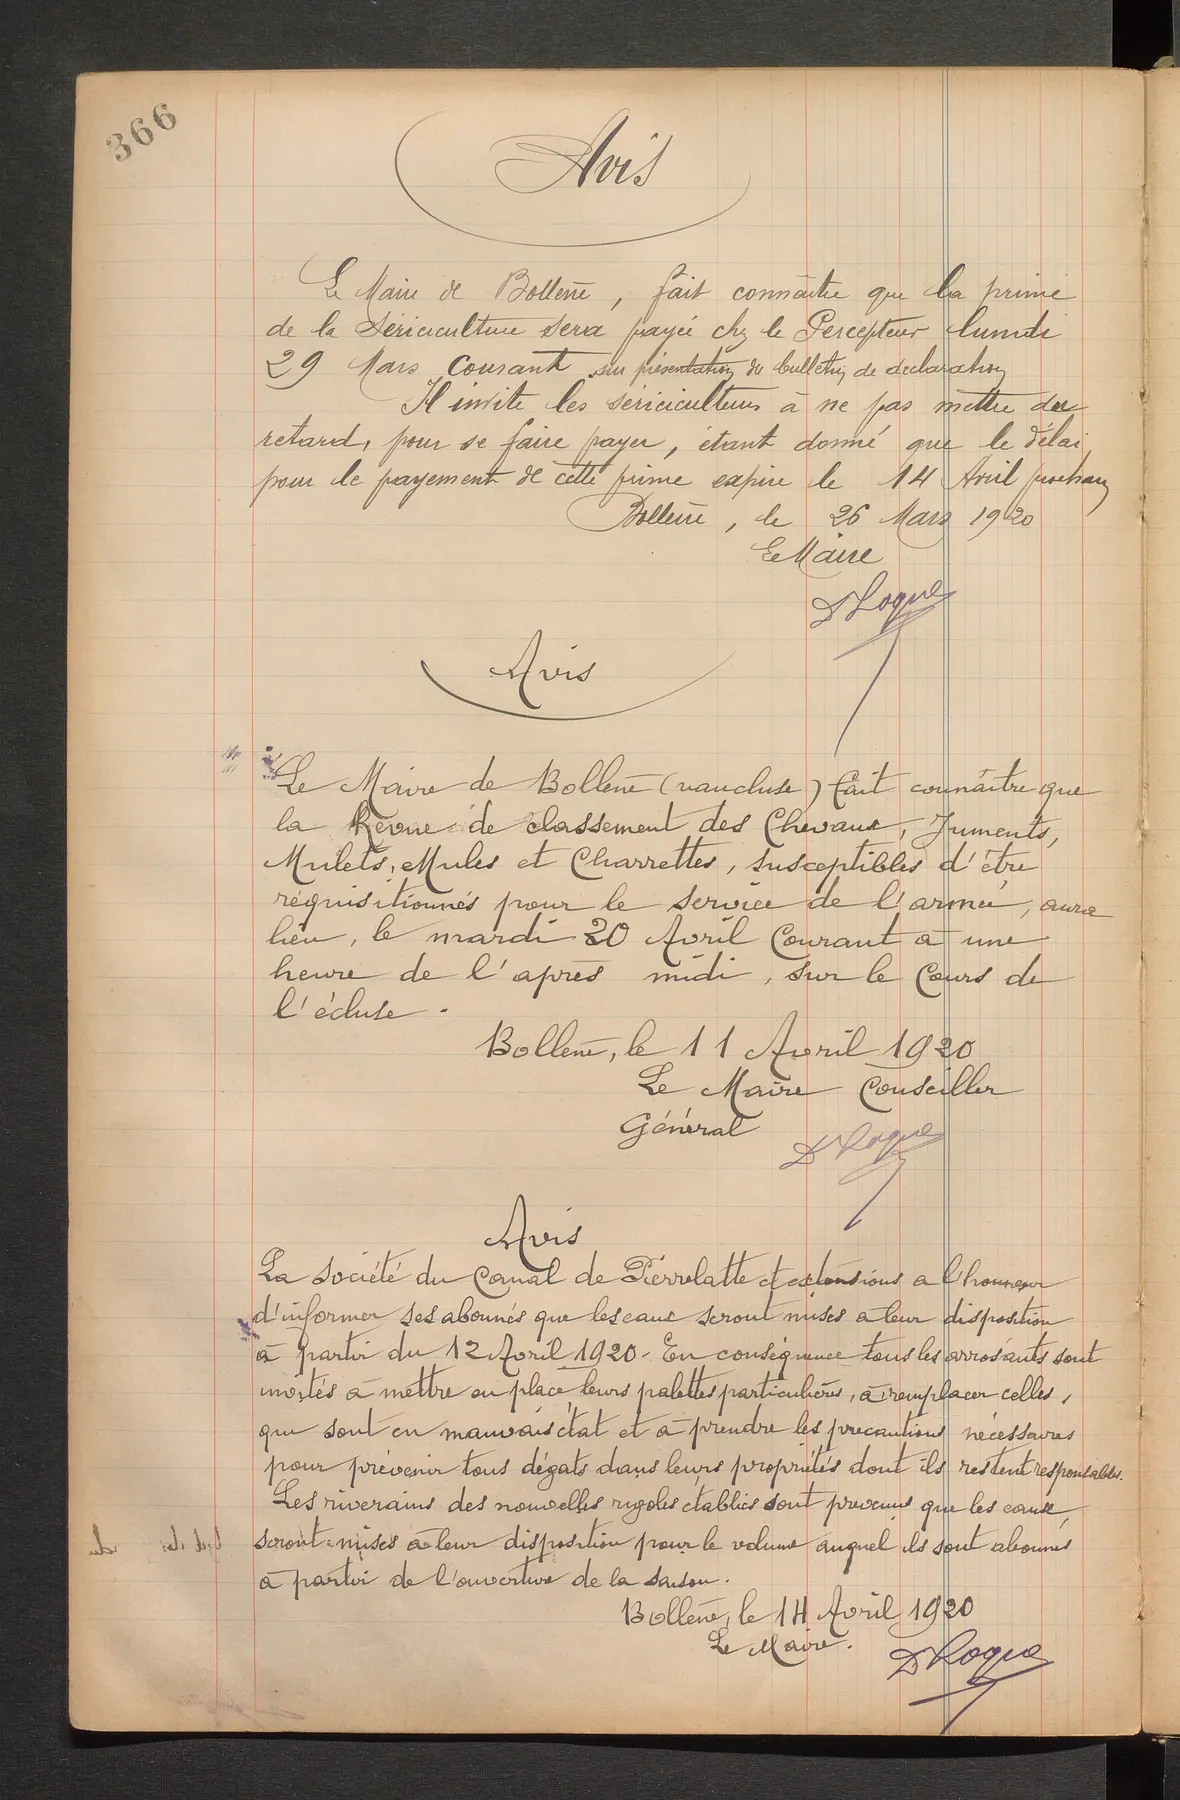 366
Avis
Le Maire de Bollène, fait connaître que la prime
de la Sériciculture sera payée chez le Percepteur lundi
29 Mars Courant sur présentation du bulletin de déclaration
Il invite les sériciculteurs à ne pas mettre du
retard, pour se faire payer, étant donné que le délai
pour le payement de cette prime expire le 14 Avril prochain
Bollène, le 26 Mars 1920
Le Maire
D Roque
Avis
Le Maire de Bollène (vaucluse) fait connaître que
la Revue de classement des Chevaux, Juments,
Mulets, Mules et Charrettes, susceptibles d'être
réquisitionnés pour le service de l'armée, aura
lieu, le mardi 20 Avril Courant à une
heure de l'après midi, sur le Cours de
l'écluse.
Bollène, le 11 Avril 1920
Le Maire Conseiller
Général
D Roque
Avis
La société du Canal de Pierrelatte et extensions a l'honneur
d'informer ses abonnés que les eaux seront mises à leur disposition
à partir du 12 Avril 1920. En conséquence tous les arrosants sont
invités à mettre en place leurs palettes particulières, à remplacer celles,
qui sont en mauvais état et à prendre les précautions nécessaires
pour prévenir tous dégats dans leurs propriétés dont ils restent responsables.
Les riverains des nouvelles rigoles établies sont prévenus que les eaux,
seront mises à leur disposition pour le volume auquel ils sont abonnés
à partir de l'ouverture de la saison.
Bollène, le 14 Avril 1920
Le Maire.
D Roque